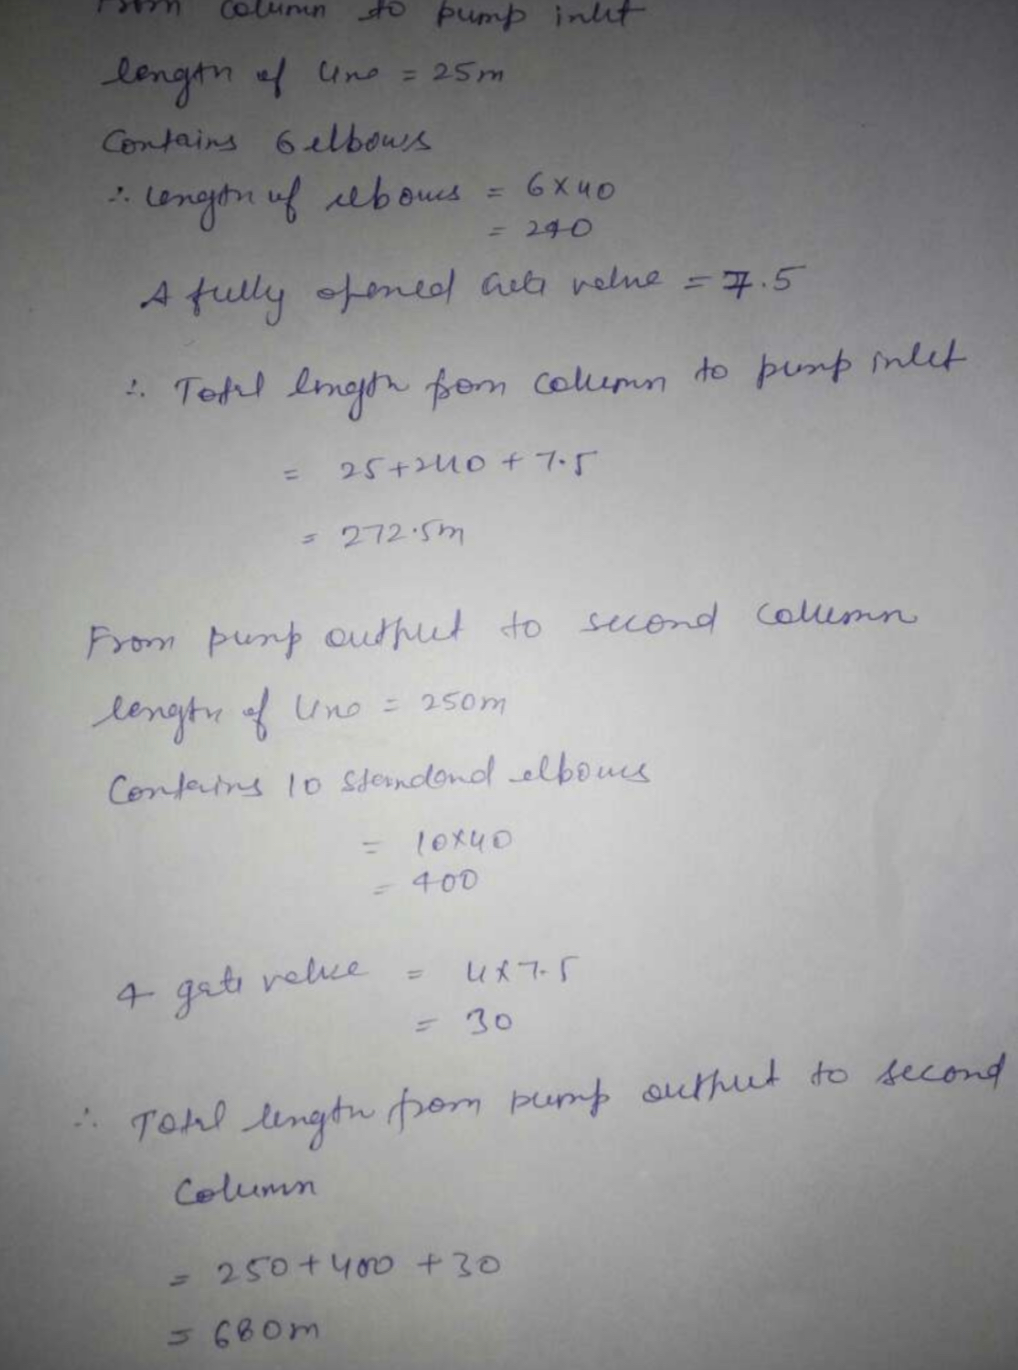 From column to pump inlet
length of line = 25m
Contains 6 elbows
∴ length of elbows = 6×40
= 240
A fully opened Gate valve = 7.5
∴ Total length from column to pump inlet
= 25+240+7.5
= 272.5m
From pump output to second column
length of line = 250m
Contains 10 standard elbows
= 10×40
= 400
4 gate valve = 4×7.5
= 30
∴ Total length from pump output to second
Column
= 250+400+30
= 680m